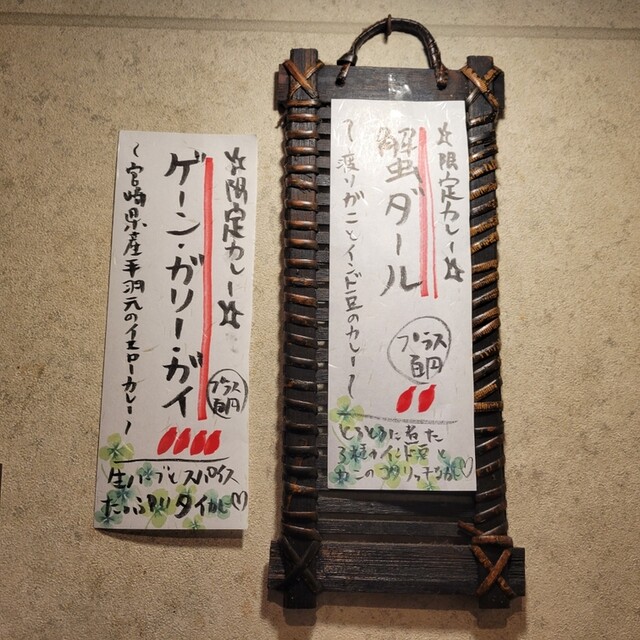 ☆限定カレー☆
ゲーン・ガリー・ガイ
プラス百円
〜宮崎県産手羽元のイエローカレー〜
生ハーブとスパイス
たっぷりタイカレー♡
☆限定カレー☆
蟹ダール
プラス百円
〜渡りガニとインド豆のカレー〜
とろとろに煮た
3種のインド豆と